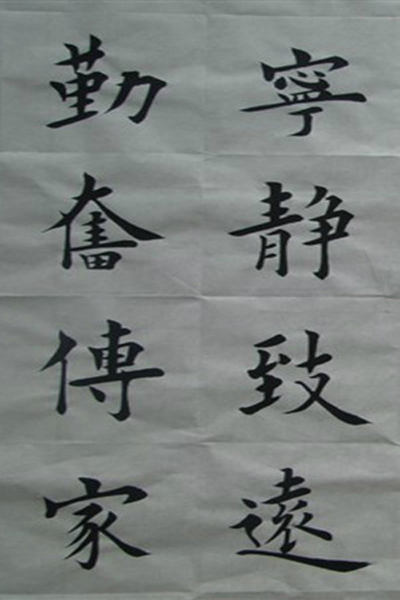 寧静致遠
勤奮傳家